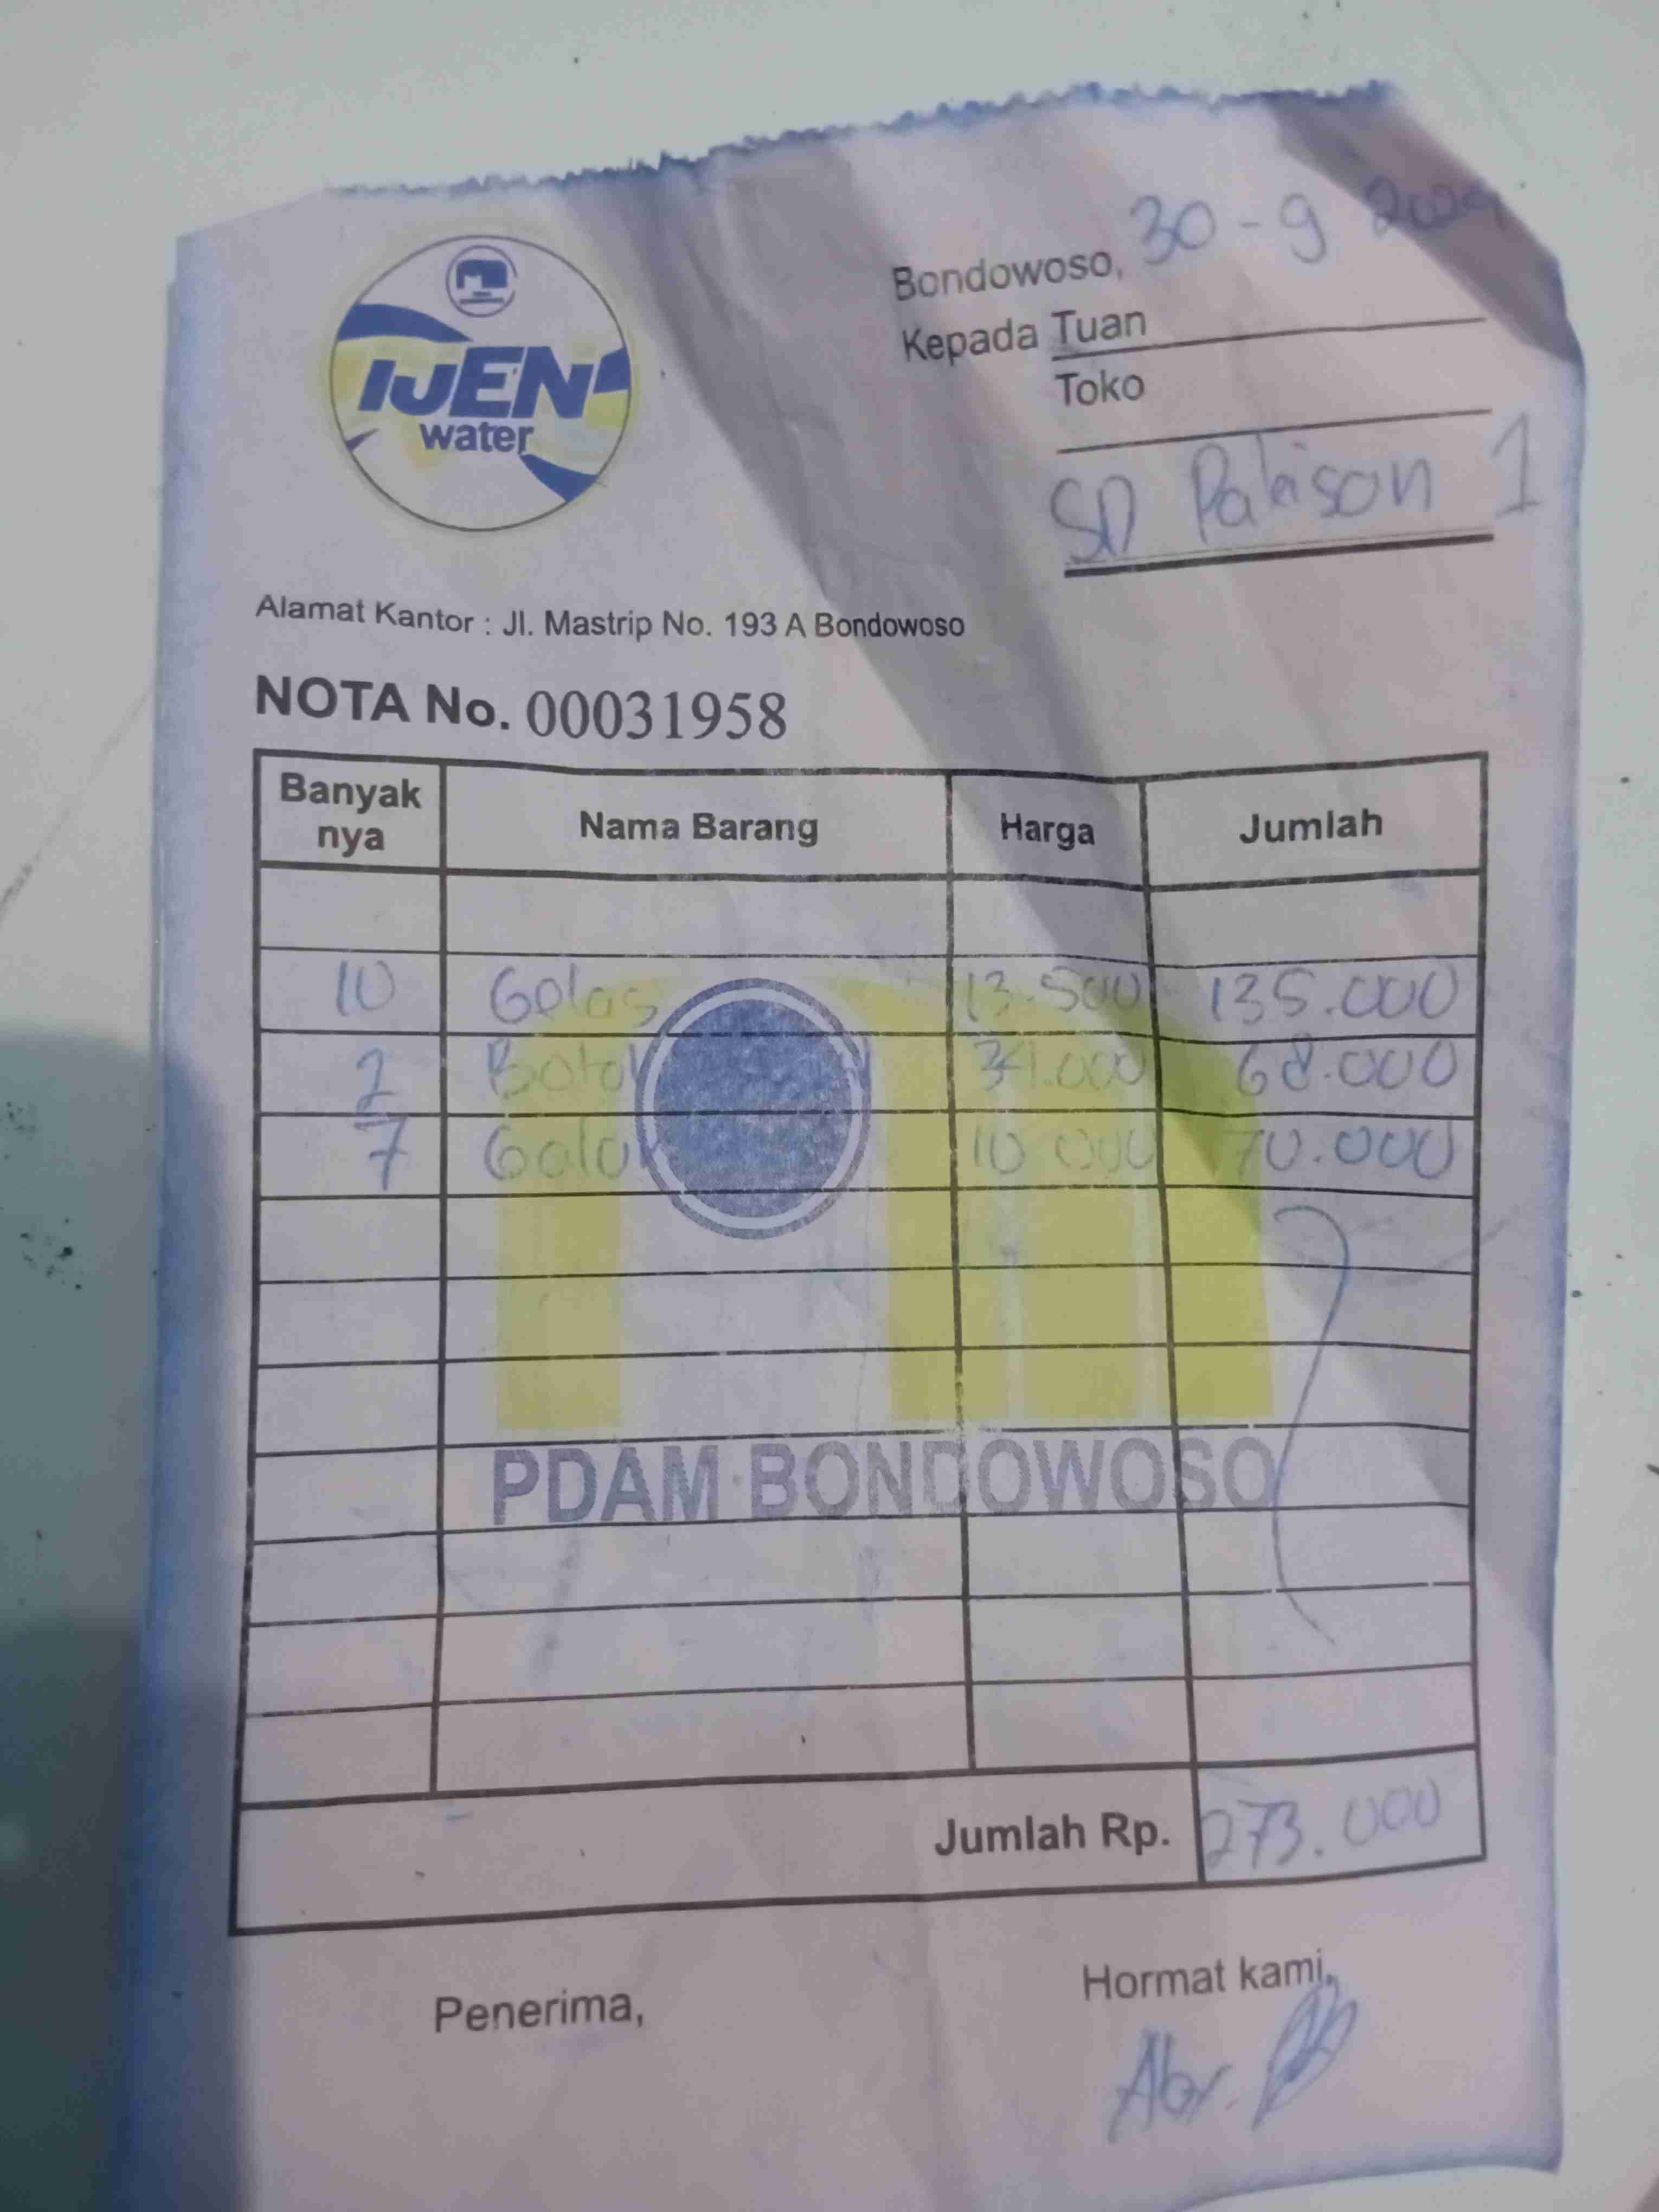 IJEN
water
Bondowoso, 30 - 9 2024
Kepada Tuan
Toko
SD Pakisan 1
Alamat Kantor : Jl. Mastrip No. 193 A Bondowoso
NOTA No. 00031958
Banyak nya Nama Barang Harga Jumlah
10 Gelas 13.500 135.000
2 Botol 34.000 68.000
7 Galon 10 000 70.000
PDAM BONDOWOSO
Jumlah Rp. 273.000
Penerima, Hormat kami,